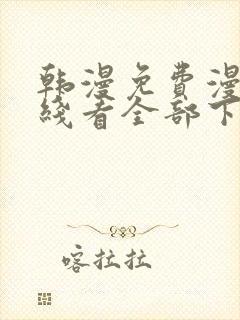 韩漫免費漫
綫看全部下
喀拉拉